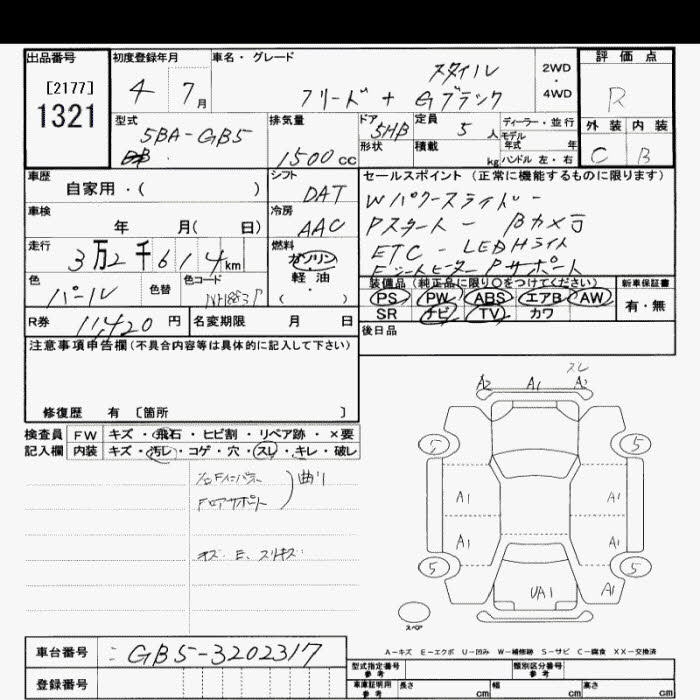 出品番号
[2177]
1321
初度登録年月
4 7月
車名・グレード
スタイル
フリード + Gブラック
2WD
・
4WD
評価点
R
外装 内装
C B
型式
5BA-GB5
排気量
1500cc
ドア 5HB
形状
定員 5人
積載 kg
ディーラー・並行
モデル年式 年
ハンドル 左・右
車歴
自家用・( )
シフト
DAT
セールスポイント (正常に機能するものに限ります)
Wパワースライドドー
Pスタート - Bカメラ
ETC - LEDHライト
Fシートヒーター Pサポート
車検
年 月( 日)
冷房
AAC
走行
3万2千614km
燃料
ガソリン
軽油
( ・ )
色
パール
色替
色コード
NH883P
装備品 (純正品に限り○をつけてください)
PS PW ABS エアB AW
SR ナビ TV カワ
新車保証書
有・無
R券 11,420円
名変期限 月 日
後日品
注意事項申告欄(不具合内容等は具体的に記入して下さい)
修復歴 有 〔箇所 〕
検査員
記入欄
FW キズ・飛石・ヒビ割・リペア跡・×要
内装 キズ・汚レ・コゲ・穴・スレ・キレ・破レ
右Fインパネ
Fロアサポート
曲り
キズ E、スリキズ
スレ
A2 A1 A2
5 5
A1 A1
A1 A1
5 5
UA1 A1
スペア
A-キズ E-エクボ U-凹み W-補修跡 S-サビ C-腐食 XX-交換済
車台番号 : GB5-3202317
登録番号
型式指定番号
参考
類別区分番号
参考
車庫証明用
参考
長さ cm 幅 cm 高さ cm